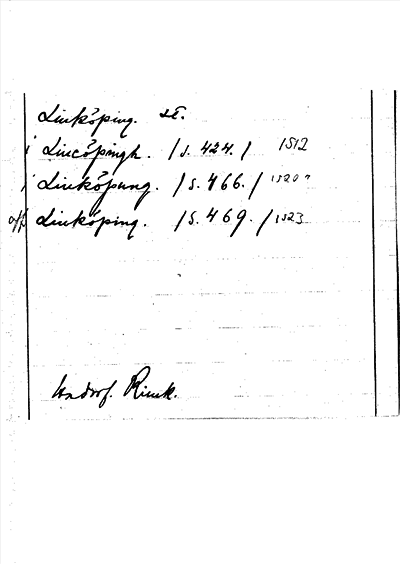 Linköping. st.
i Lincöpingh. /s. 424./ 1512
i Linköpung. /s. 466./ 1520?
aff Linköping. /s. 469./ 1523
Rimk.